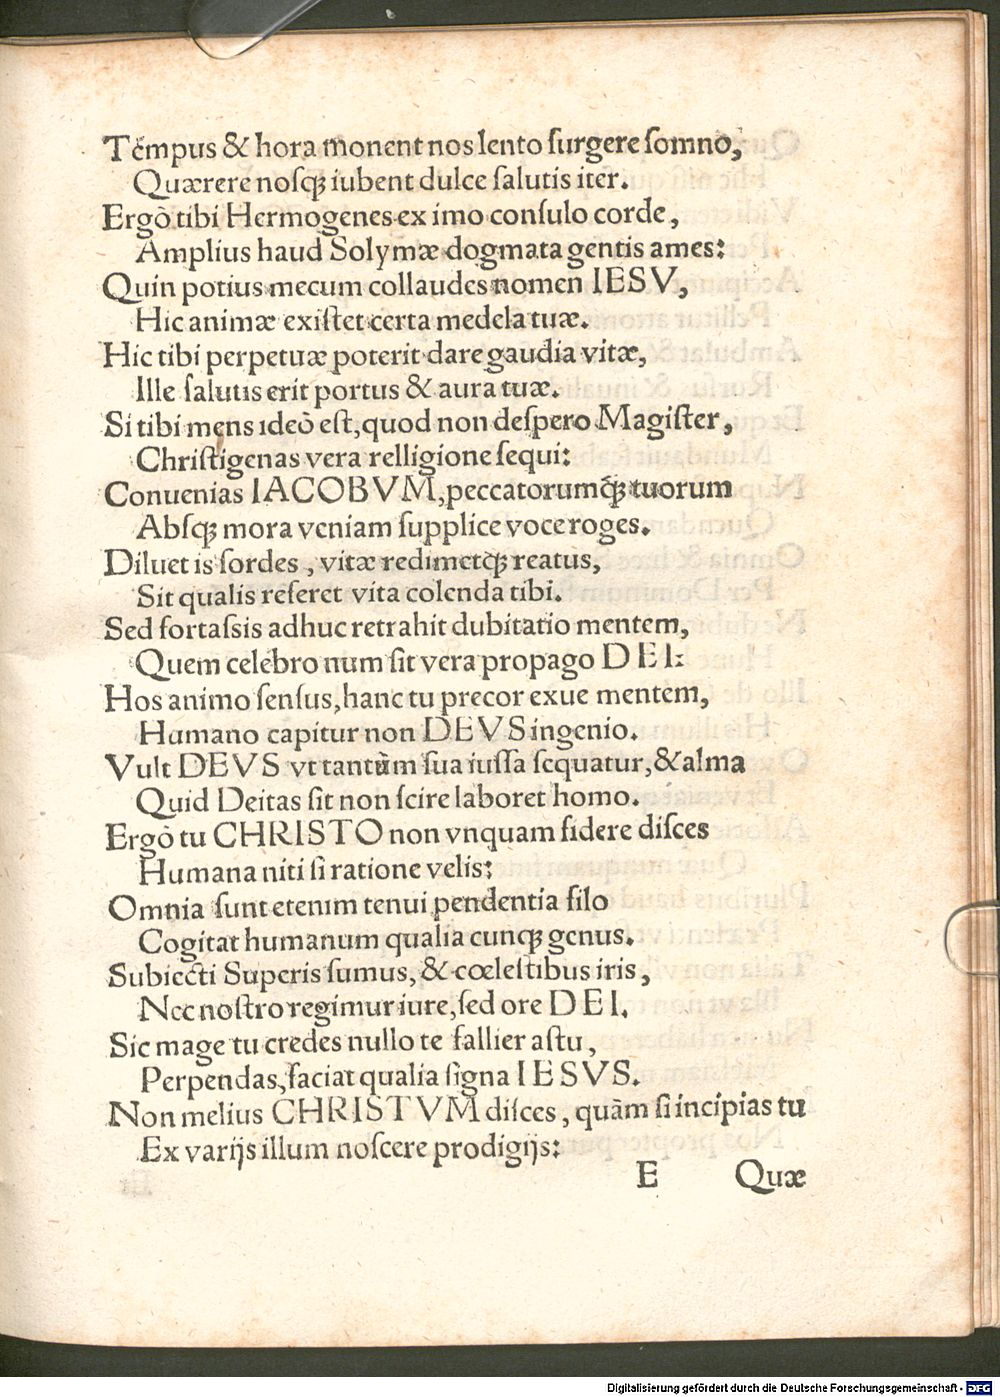 Tẽmpus & hora monent nos lento ſurgere ſomno,
Quærere noſqꝫ iubent dulce ſalutis iter.
Ergò tibi Hermogenes ex imo conſulo corde,
Amplius haud Solymæ dogmata gentis ames:
Quin potius mecum collaudes nomen IESV,
Hic animæ exiſtet certa medela tuæ.
Hic tibi perpetuæ poterit dare gaudia vitæ,
Ille ſalutis erit portus & aura tuæ.
Si tibi mens ideò eſt, quod non deſpero Magiſter,
Chriſtigenas vera relligione ſequi:
Conuenias IACOBVM, peccatorumqꝫ tuorum
Abſqꝫ mora veniam ſupplice voce roges.
Diluet is ſordes, vitæ redimetqꝫ reatus,
Sit qualis referet vita colenda tibi.
Sed fortaſsis adhuc retrahit dubitatio mentem,
Quem celebro num ſit vera propago DEI:
Hos animo ſenſus, hanc tu precor exue mentem,
Humano capitur non DEVS ingenio.
Vult DEVS vt tantùm ſua iuſſa ſequatur, & alma
Quid Deitas ſit non ſcire laboret homo.
Ergò tu CHRISTO non vnquam fidere diſces
Humana niti ſi ratione velis:
Omnia ſunt etenim tenui pendentia filo
Cogitat humanum qualia cunqꝫ genus.
Subiecti Superis ſumus, & cœleſtibus iris,
Nec noſtro regimur iure, ſed ore DEI.
Sic mage tu credes nullo te fallier aſtu,
Perpendas, faciat qualia ſigna IESVS.
Non melius CHRISTVM diſces, quàm ſi incipias tu
Ex varijs illum noſcere prodigijs:
E Quæ
Digitalisierung gefördert durch die Deutsche Forschungsgemeinschaft - DFG